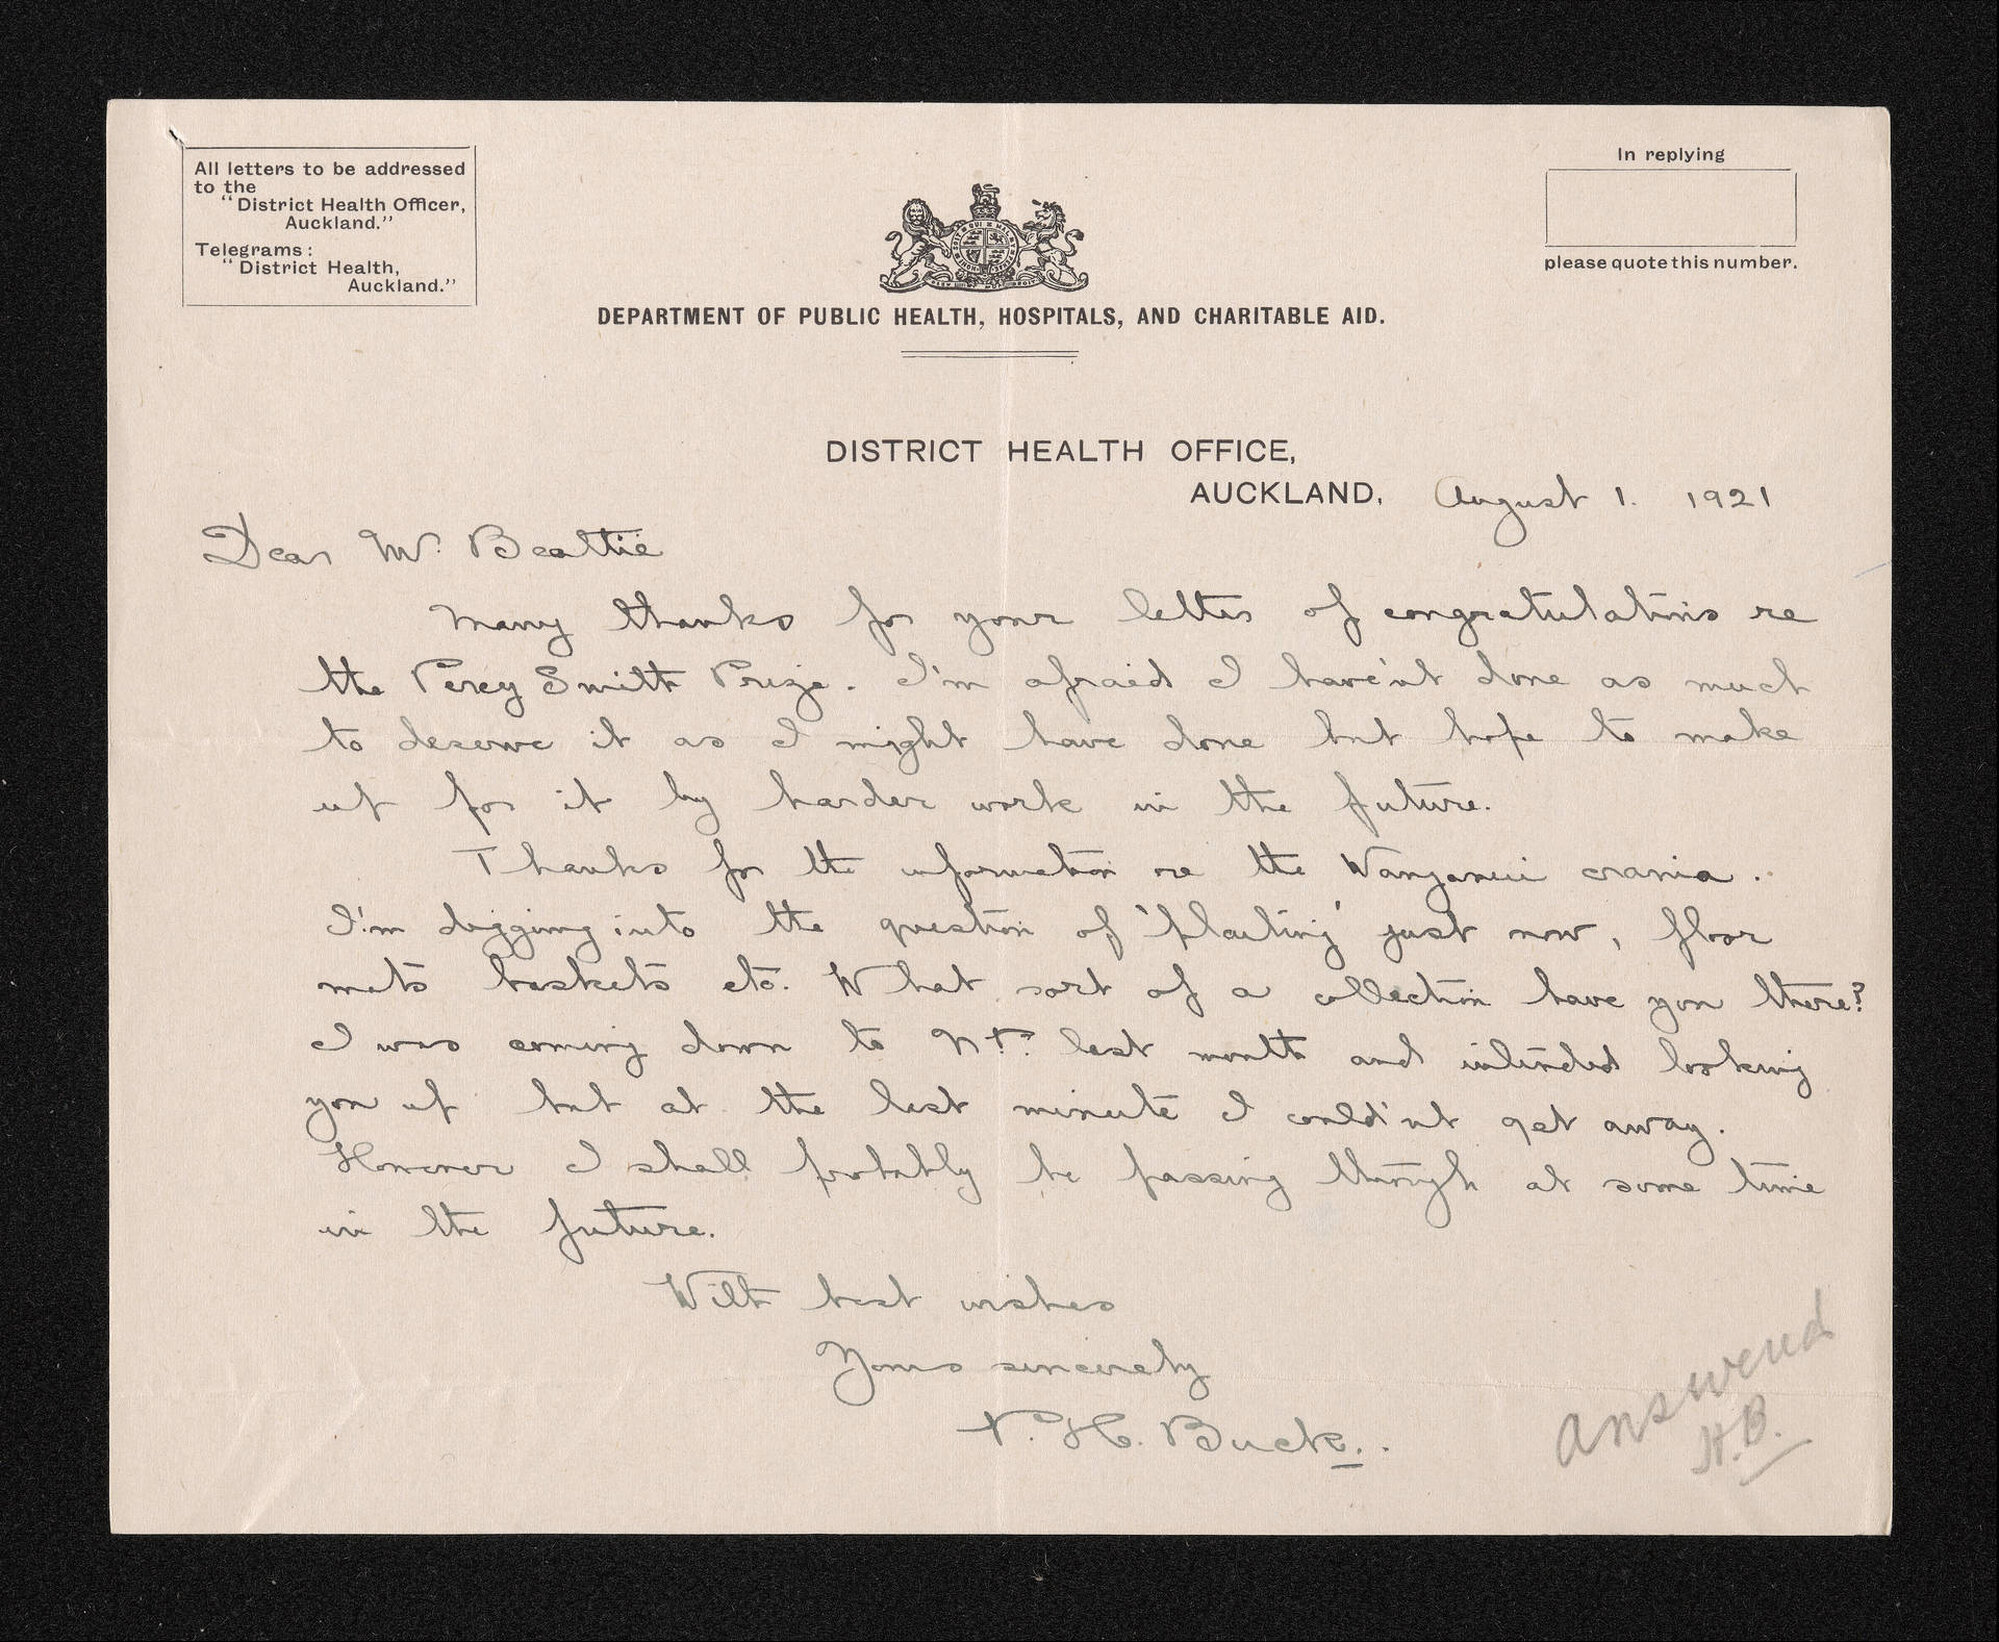 All letters to be addressed
to the
"District Health Officer,
Auckland."
Telegrams:
"District Health,
Auckland."
In replying
please quote this number.
DEPARTMENT OF PUBLIC HEALTH, HOSPITALS, AND CHARITABLE AID.
DISTRICT HEALTH OFFICE,
AUCKLAND, August 1. 1921
Dear Mr. Beattie
Many thanks for your letter of congratulations re
the Percy Smith Prize. I'm afraid I have'nt done as much
to deserve it as I might have done but hope to make
up for it by harder work in the future.
Thanks for the information re the Wanganui crania.
I'm digging into the question of 'plaiting' just now, floor
mats baskets etc. What sort of a collection have you there?
I was coming down to N.P. last month and intended looking
you up but at the last minute I could'nt get away.
However I shall probably be passing through at some time
in the future.
With best wishes
Yours sincerely
P. H. Buck.
answered
H.B.